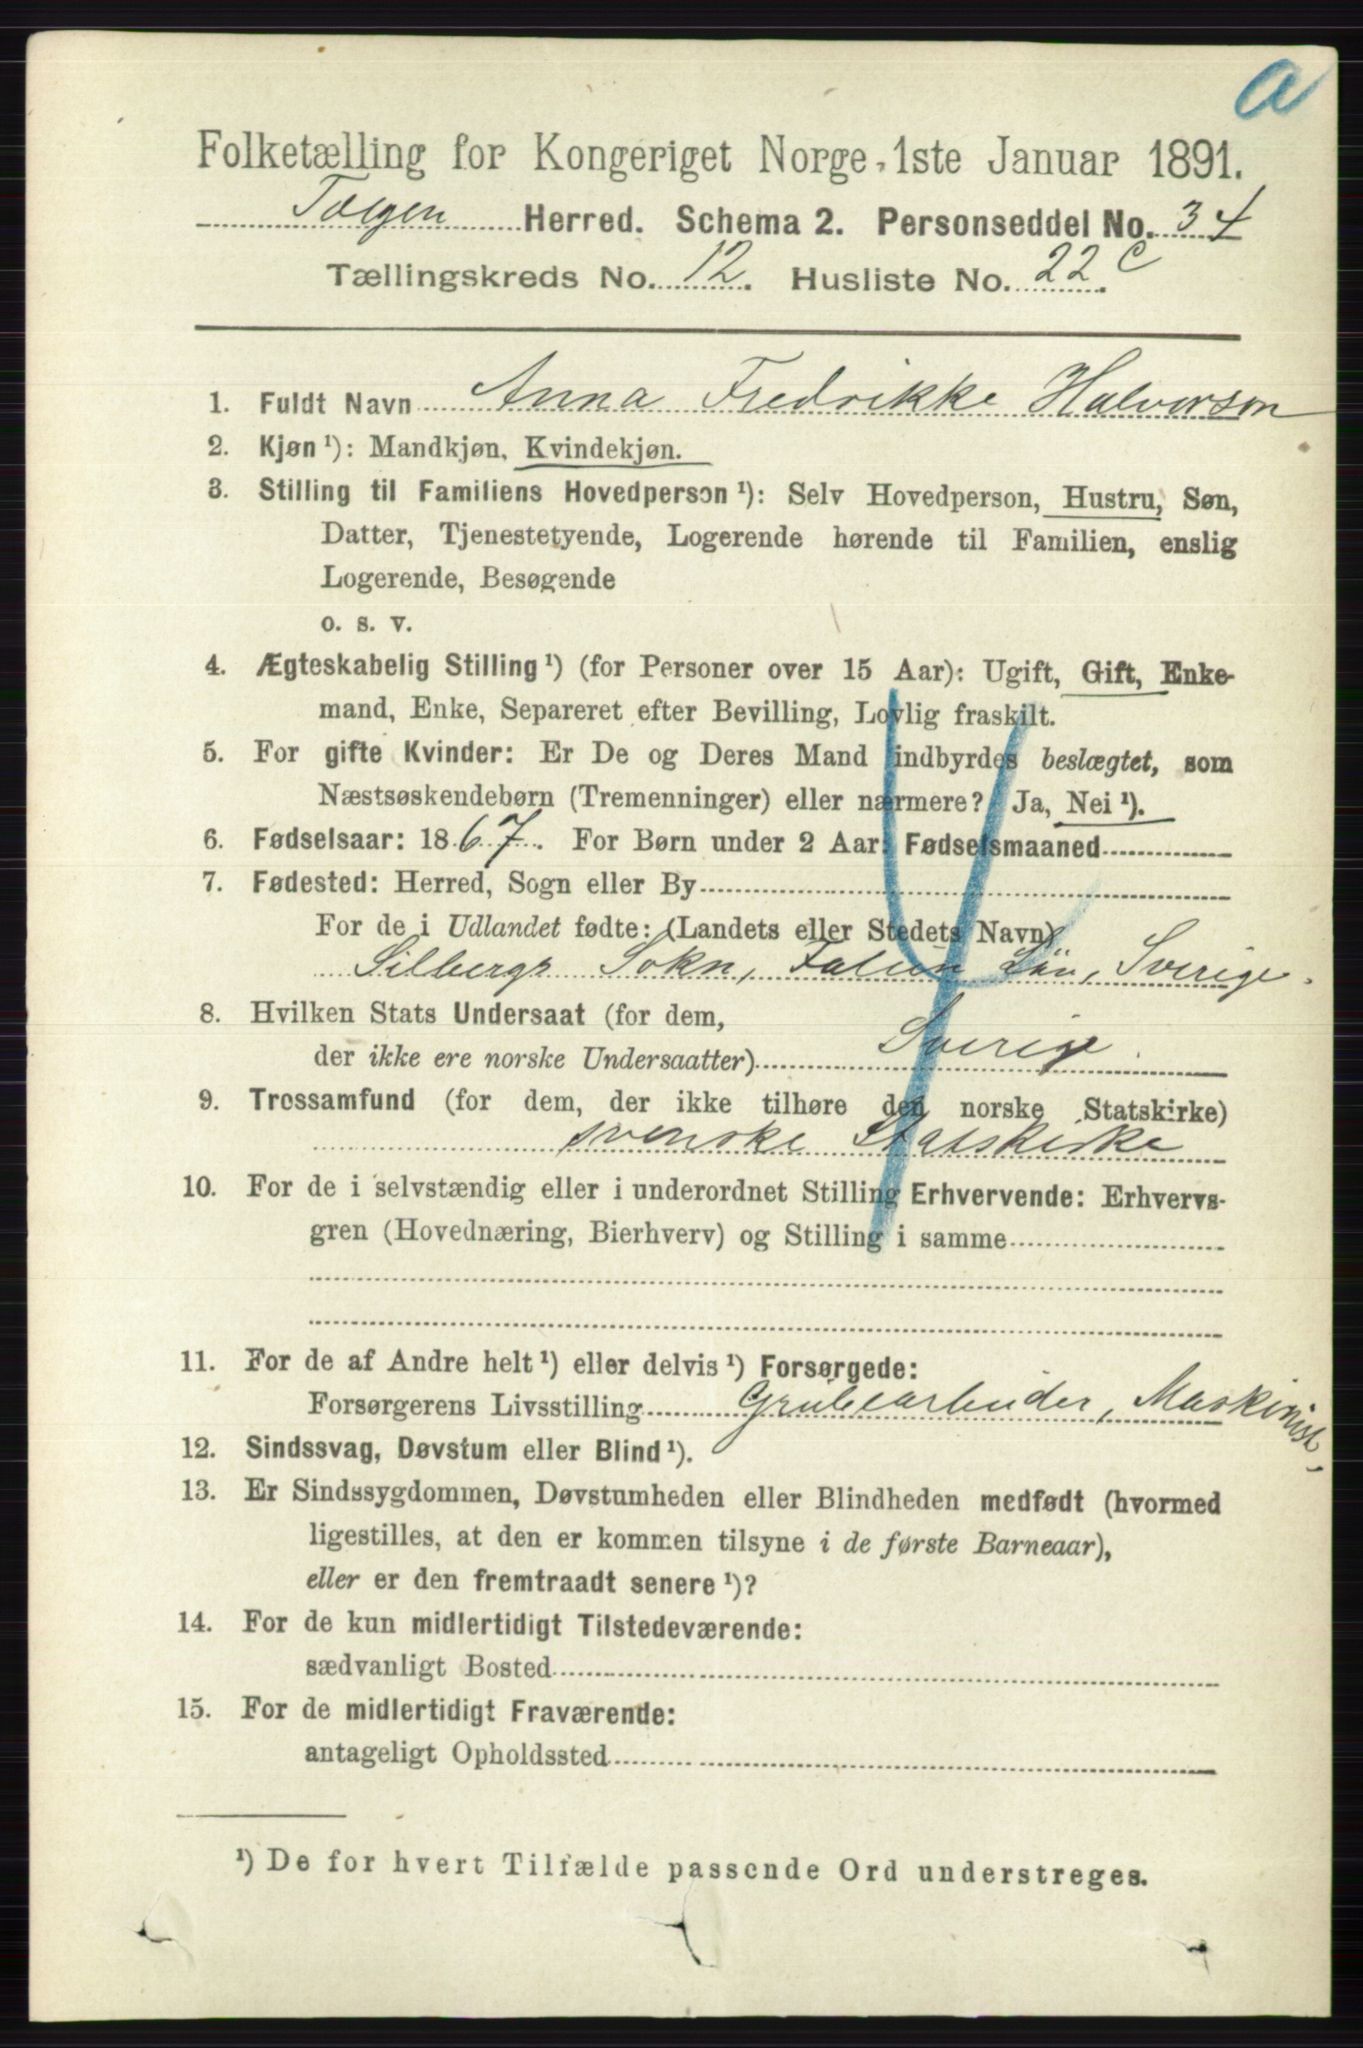 a
Folketælling for Kongeriget Norge 1ste Januar 1891.
Tolgen Herred. Schema 2. Personseddel No. 34
Tællingskreds No. 12. Husliste No. 22 C.
1. Fuldt Navn Anna Fredrikke Halvorson
2. Kjøn ¹): Mandkjøn, Kvindekjøn.
3. Stilling til Familiens Hovedperson ¹): Selv Hovedperson, Hustru, Søn,
Datter, Tjenestetyende, Logerende hørende til Familien, enslig
Logerende, Besøgende
o. s. v.
4. Ægteskabelig Stilling ¹) (for Personer over 15 Aar): Ugift, Gift, Enke-
mand, Enke, Separeret efter Bevilling, Lovlig fraskilt.
5. For gifte Kvinder: Er De og Deres Mand indbyrdes beslægtet, som
Næstsøskendebørn (Tremenninger) eller nærmere? Ja, Nei ¹).
6. Fødselsaar: 1867. For Børn under 2 Aar: Fødselsmaaned
7. Fødested: Herred, Sogn eller By
For de i Udlandet fødte: (Landets eller Stedets Navn)
Silbergs Sokn, Falun Län, Sverige.
8. Hvilken Stats Undersaat (for dem,
der ikke ere norske Undersaatter) Sverige.
9. Trossamfund (for dem, der ikke tilhøre den norske Statskirke)
svenske Statskirke
10. For de i selvstændig eller i underordnet Stilling Erhvervende: Erhvervs-
gren (Hovednæring, Bierhverv) og Stilling i samme
11. For de af Andre helt ¹) eller delvis ¹) Forsørgede:
Forsørgerens Livsstilling Grubearbeider, Maskinist,
12. Sindssvag, Døvstum eller Blind ¹).
13. Er Sindssygdommen, Døvstumheden eller Blindheden medfødt (hvormed
ligestilles, at den er kommen tilsyne i de første Barneaar),
eller er den fremtraadt senere ¹)?
14. For de kun midlertidigt Tilstedeværende:
sædvanligt Bosted
15. For de midlertidigt Fraværende:
antageligt Opholdssted
¹) De for hvert Tilfælde passende Ord understreges.